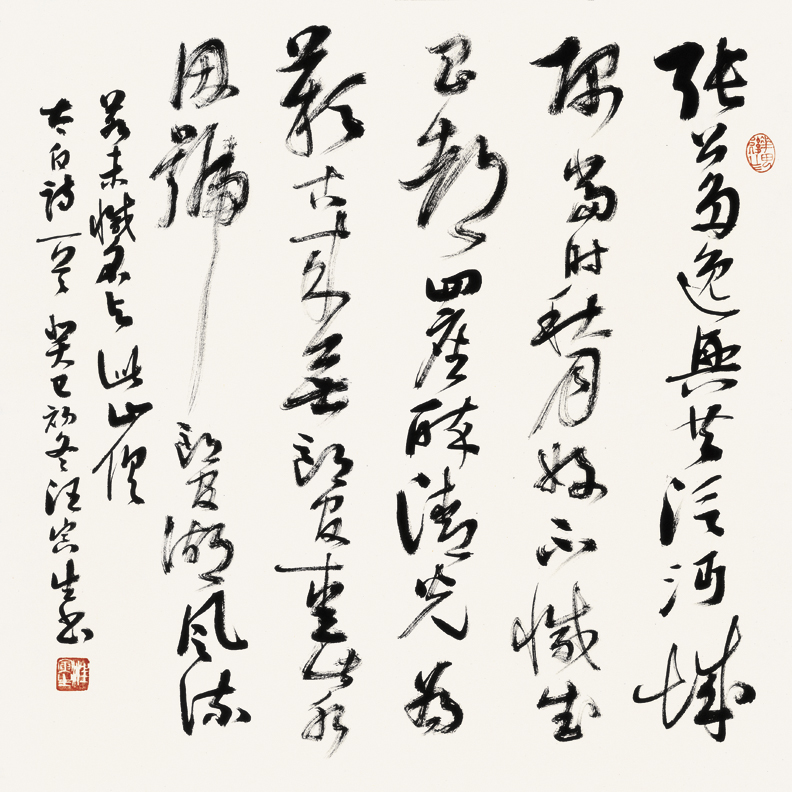 張公多逸興共泛沔城
隅當時秋月好不減武
昌都四座醉清光為
歡古來無郎官愛此水
因號郎官湖風流
若未減名與此山俱
太白詩一首 癸巳初冬汪寅生書